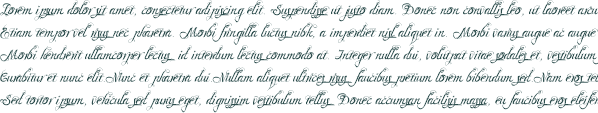 Lorem ipsum dolor sit amet, consectetur adipiscing elit. Suspendisse ut justo diam. Donec non convallis leo, ut laoreet arcu
Etiam tempor vel risus nec pharetra. Morbi fringilla luctus nibh, a imperdiet nisl aliquet in. Morbi varius augue ac augue
Morbi hendrerit ullamcorper lectus, id interdum lectus commodo at. Integer nulla dui, volutpat vitae sodales et, vestibulum
Curabitur et nunc elit. Nunc et pharetra dui. Nullam aliquet ultricies risus, faucibus pretium lorem bibendum sed. Nam eros tel
Sed tortor ipsum, vehicula sed purus eget, dignissim vestibulum tellus. Donec accumsan facilisis massa, eu faucibus eros eleifen